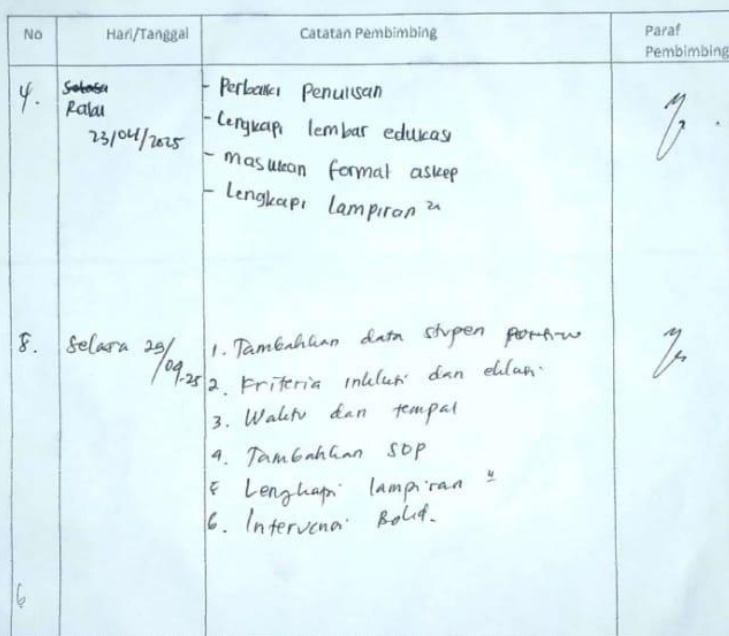 No Hari/Tanggal Catatan Pembimbing Paraf Pembimbing
4. Selasa Rabu 23/04/2025
- Perbaiki Penulisan
- Lengkapi lembar edukasi
- masukan format askep
- Lengkapi lampiran 2n
8. Selasa 29/04-25
1. Tambahkan data stupen
2. Kriteria inklusi dan eklusi
3. Waktu dan tempat
4. Tambahkan SOP
5 Lengkapi lampiran "
6. Intervensi Bold.
6